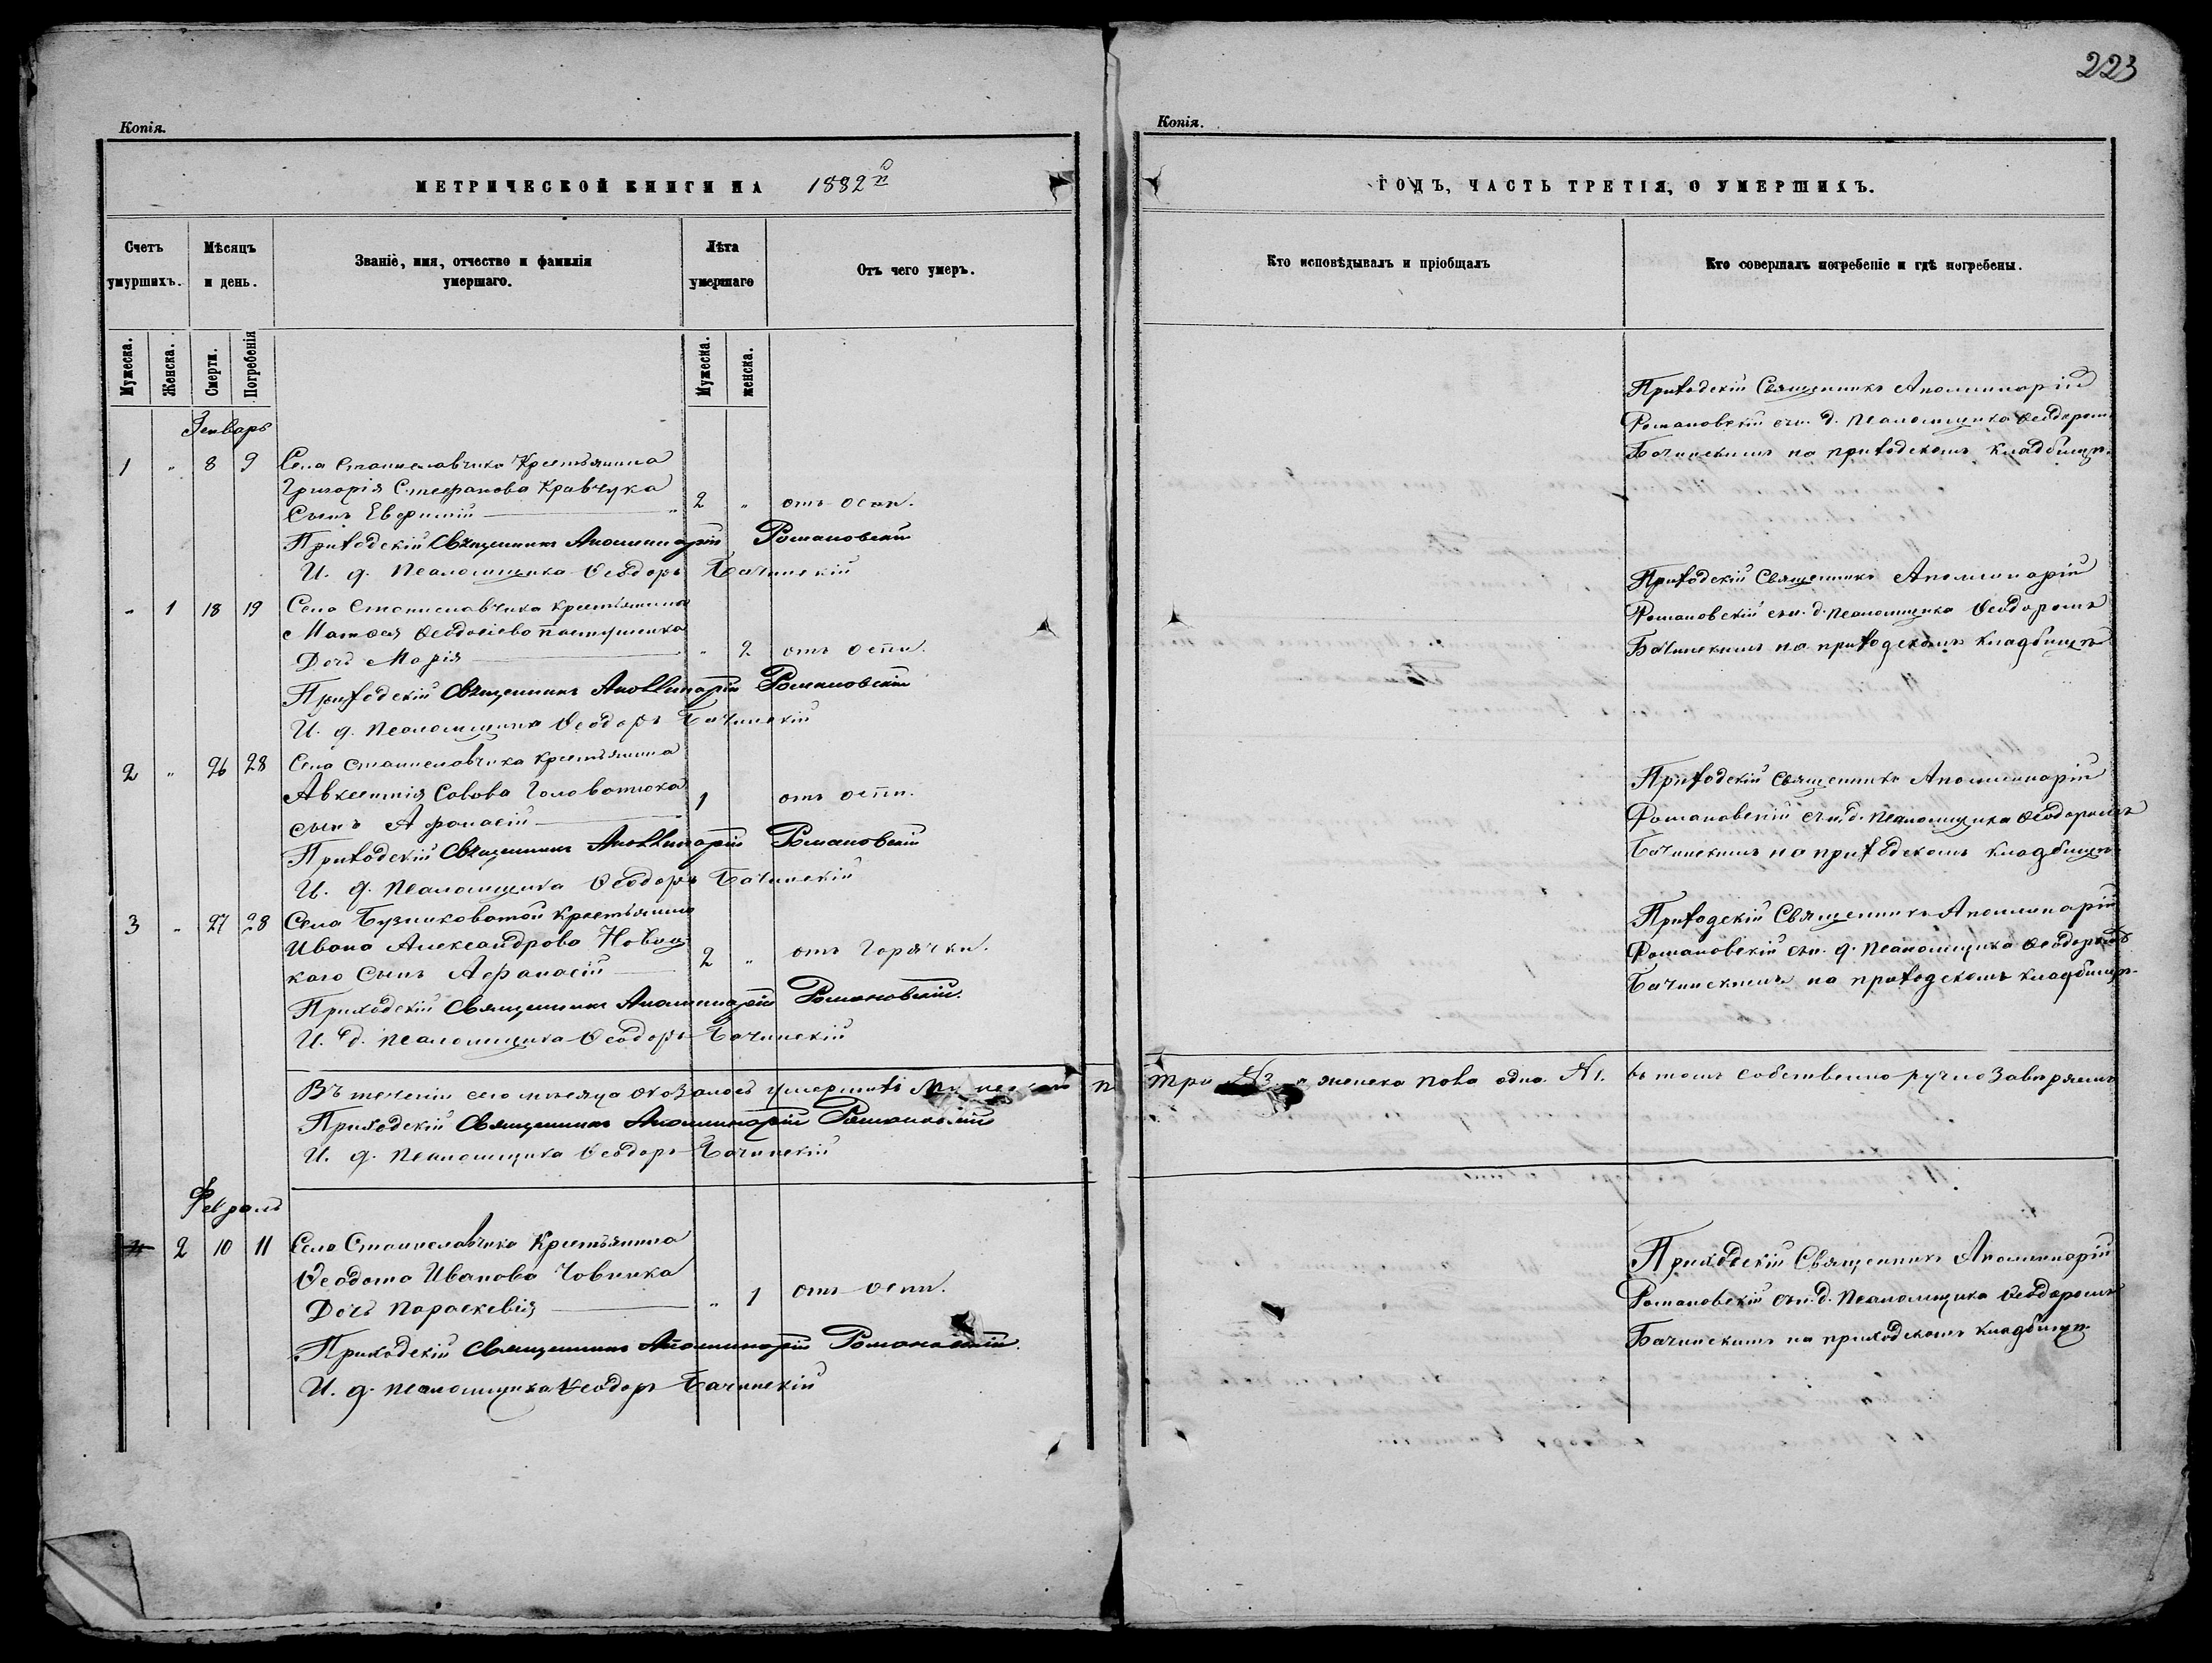 223
Копія.
МЕТРИЧЕСКОЙ КНИГИ НА 1882й
Счетъ умуршихъ.
Мѣсяцъ и день.
Званіе, имя, отчество и фамилія умершаго.
Лѣта умершаго
Отъ чего умеръ.
Мужеска.
Женска.
Смерти.
Погребенія
Мужеска.
женска.
Генварь
1 " 8 9 Села Станиславчика Крестьянина
Григорія Стефанова Кравчука
Сынъ Евфимій " 2 " отъ оспи.
Приходскій Священникъ Аполлинарій Романовскій
И. д. Псаломщика Ѳеодоръ Бачинскій
" 1 18 19 Села Станиславчика крестьянина
Матѳея Ѳеодосіева Пастушенка
Дочь Марія " 2 отъ оспи.
Приходскій Священникъ Аполлинарій Романовскій
И. д. Псаломщика Ѳеодоръ Бачинскій
2 " 26 28 Села Станиславчика крестьянина
Авксентія Савова Головатюка
сынъ Афанасій 1 отъ оспи.
Приходскій Священникъ Аполлинарій Романовскій
И. д. Псаломщика Ѳеодоръ Бачинскій
3 " 27 28 Села Бузниковатой Крестьянина
Ивана Александрова Новиц
каго Сынъ Афанасій 2 " отъ Горячки.
Приходскій Священникъ Аполлинарій Романовскій.
И. д. Псаломщика Ѳеодоръ Бачинскій
Въ теченіи сего мѣсяца оказалось умершихъ
Приходскій Священникъ Аполлинарій Романовскій
И. д. Псаломщика Ѳеодоръ Бачинскій
Февраль
4 2 10 11 Села Станиславчика Крестьянина
Ѳеодота Иванова Човника
Дочь Параскевія " 1 отъ оспи.
Приходскій Священникъ Аполлинарій Романовскій.
И. д. Псаломщика Ѳеодоръ Бачинскій
Копія.
ГОДЪ, ЧАСТЬ ТРЕТІЯ, О УМЕРШИХЪ.
Кто исповѣдывалъ и пріобщалъ
Кто совершалъ погребеніе и гдѣ погребены.
Приходскій Священникъ Аполлинарій
Романовскій съ и. д. Псаломщика Ѳеодоромъ
Бачинскимъ на приходскомъ кладбищѣ.
Приходскій Священникъ Аполлинарій
Романовскій съ и. д. Псаломщика Ѳеодоромъ
Бачинскимъ на приходскомъ кладбищѣ
Приходскій Священникъ Аполлинарій
Романовскій съ и. д. Псаломщика Ѳеодоромъ
Бачинскимъ на приходскомъ кладбищѣ
Приходскій Священникъ Аполлинарій
Романовскій съ и. д. Псаломщика Ѳеодоромъ
Бачинскимъ на приходскомъ кладбищѣ
три женска пола одна №1. въ томъ собственноручно Завѣряемъ
Приходскій Священникъ Аполлинарій
Романовскій съ и. д. Псаломщика Ѳеодоромъ
Бачинскимъ на приходскомъ кладбищѣ.